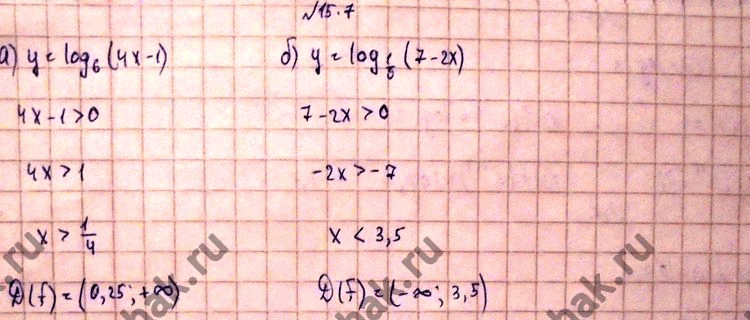 №15.7
а) y = log₆(4x-1)
4x-1>0
4x>1
x > 1/4
D(f) = (0,25; +∞)
б) y = log_{1/5}(7-2x)
7-2x>0
-2x>-7
x < 3,5
D(f) = (-∞; 3,5)
hak.ru
hak.ru